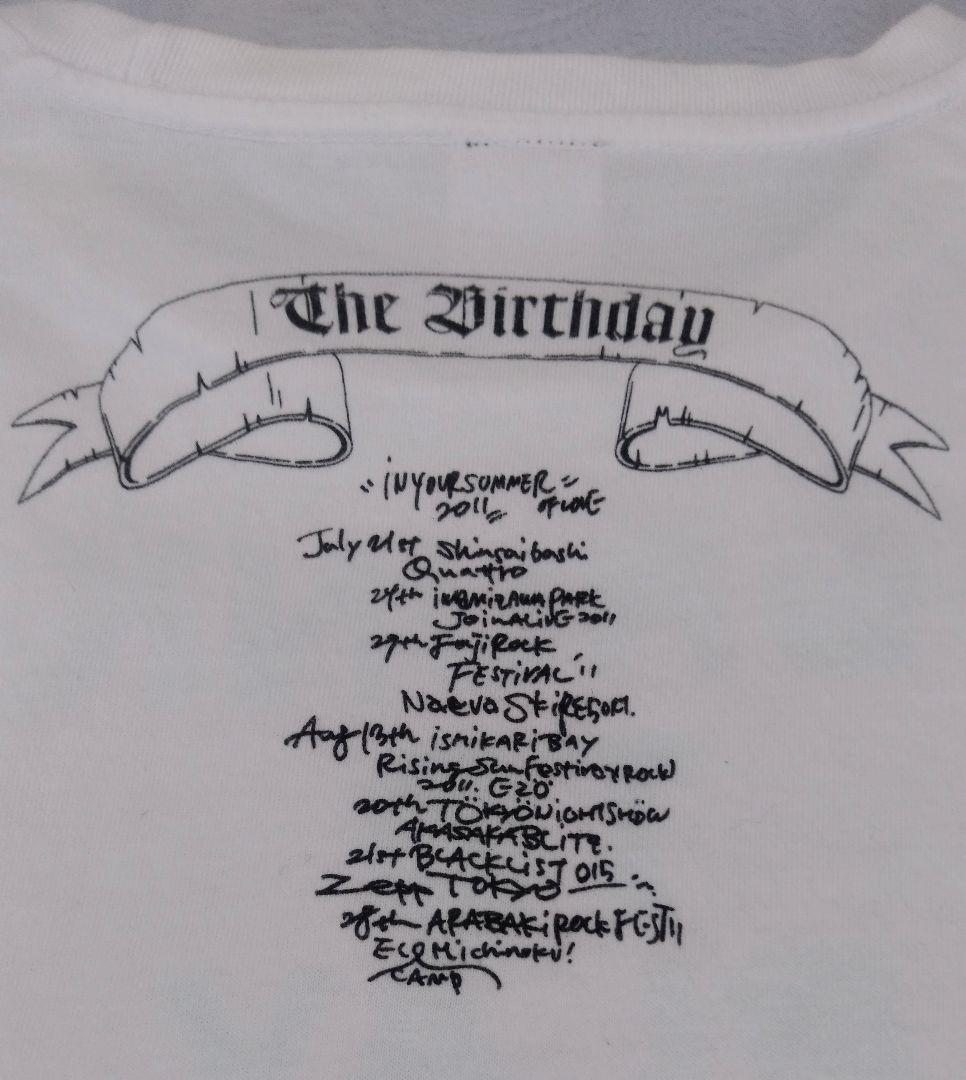 The Birthday
"iN YOUR SUMMER"
2011 OF LOVE
July 21st Shinsaibashi
Quattro
24th iWAMIZAWA PARK
JOiN ALiVE 2011
29th Fuji Rock
FESTiVAL '11
Naeva Ski RESORT.
Aug 13th iSHiKARi BAY
Rising Sun Festival ROCK
2011. EZO
20th TÖKYÖ NiGHT SHÖW
AKASAKA BLiTZ.
21st BLACKLiST 015
Zepp TOKYO
28th ARABAKi Rock FEST11
ECO Michinoku!
CAMP